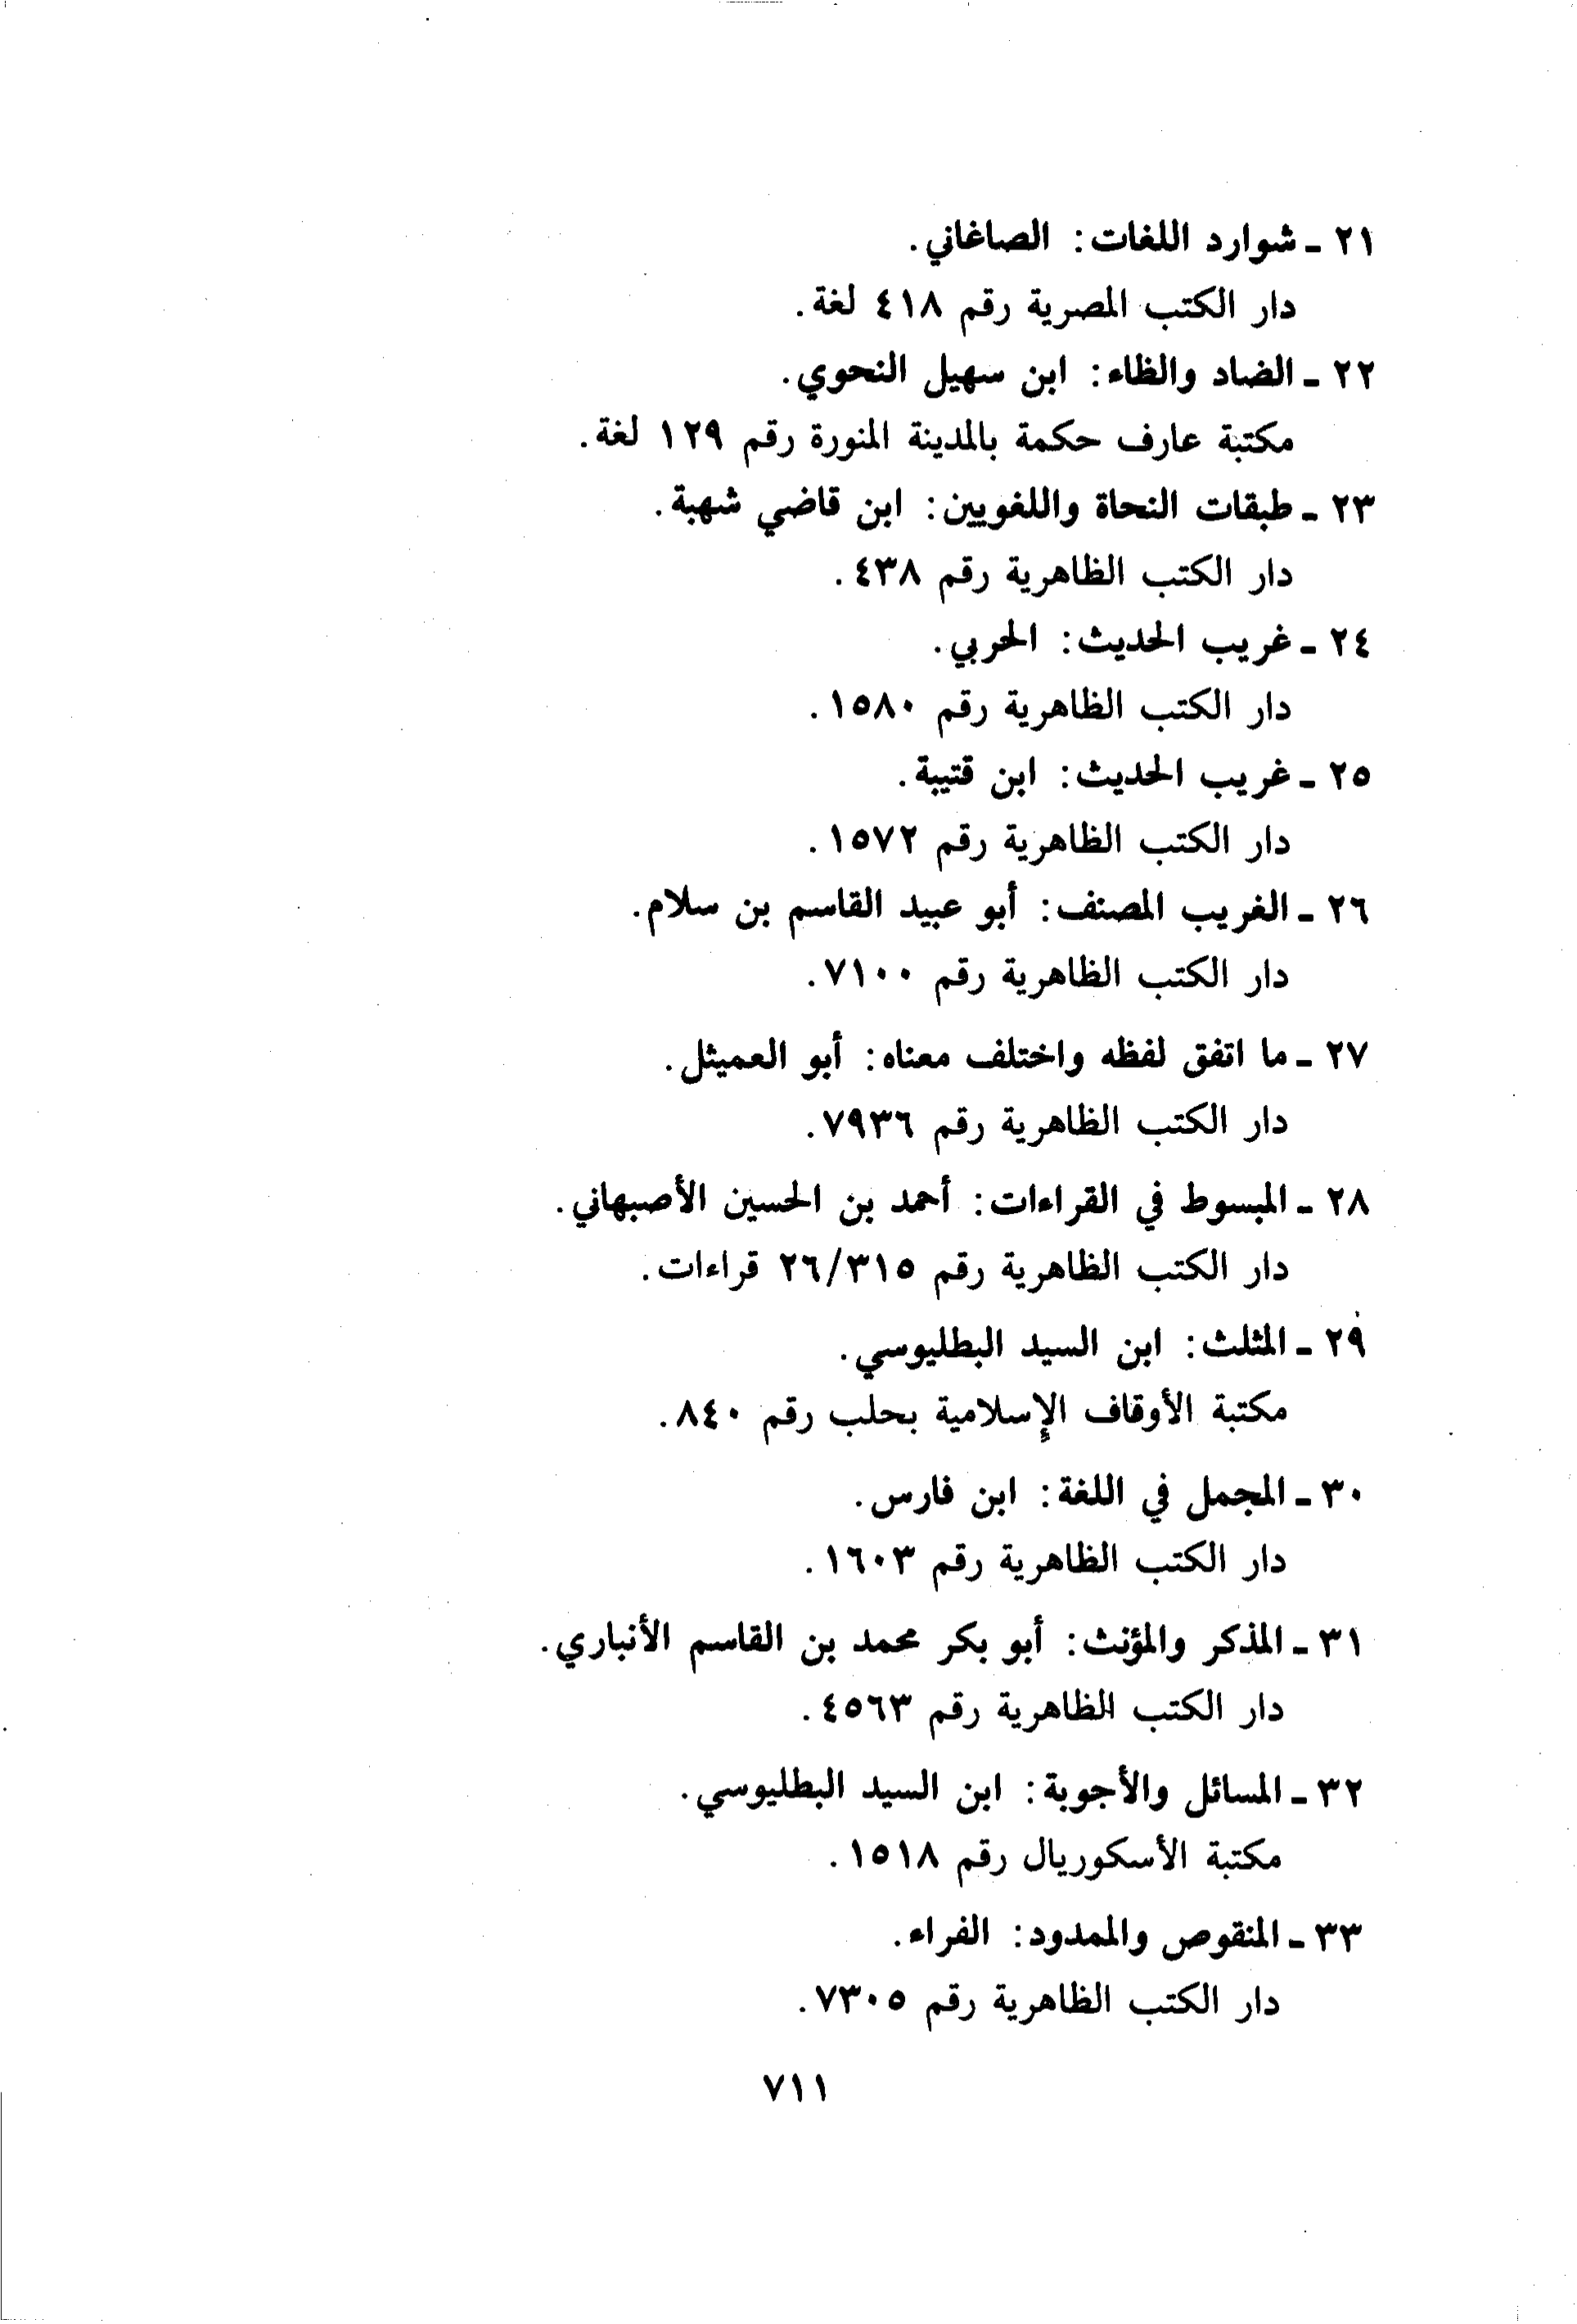 ٢١ ـ شوارد اللغات: الصاغاني.
دار الكتب المصرية رقم ٤١٨ لغة.
٢٢ ـ الضاد والظاء: ابن سهيل النحوي.
مكتبة عارف حكمة بالمدينة المنورة رقم ١٢٩ لغة.
٢٣ ـ طبقات النحاة واللغويين: ابن قاضي شهبة.
دار الكتب الظاهرية رقم ٤٣٨.
٢٤ ـ غريب الحديث: الحربي.
دار الكتب الظاهرية رقم ١٥٨٠.
٢٥ ـ غريب الحديث: ابن قتيبة.
دار الكتب الظاهرية رقم ١٥٧٢.
٢٦ ـ الغريب المصنف: أبو عبيد القاسم بن سلام.
دار الكتب الظاهرية رقم ٧١٠٠.
٢٧ ـ ما اتفق لفظه واختلف معناه: أبو العميثل.
دار الكتب الظاهرية رقم ٧٩٣٦.
٢٨ ـ المبسوط في القراءات: أحمد بن الحسين الأصبهاني.
دار الكتب الظاهرية رقم ٢٦/٣١٥ قراءات.
٢٩ ـ المثلث: ابن السيد البطليوسي.
مكتبة الأوقاف الإسلامية بحلب رقم ٨٤٠.
٣٠ ـ المجمل في اللغة: ابن فارس.
دار الكتب الظاهرية رقم ١٦٠٣.
٣١ ـ المذكر والمؤنث: أبو بكر محمد بن القاسم الأنباري.
دار الكتب الظاهرية رقم ٤٥٦٣.
٣٢ ـ المسائل والأجوبة: ابن السيد البطليوسي.
مكتبة الأسكوريال رقم ١٥١٨.
٣٣ ـ المنقوص والممدود: الفراء.
دار الكتب الظاهرية رقم ٧٣٠٥.
٧١١